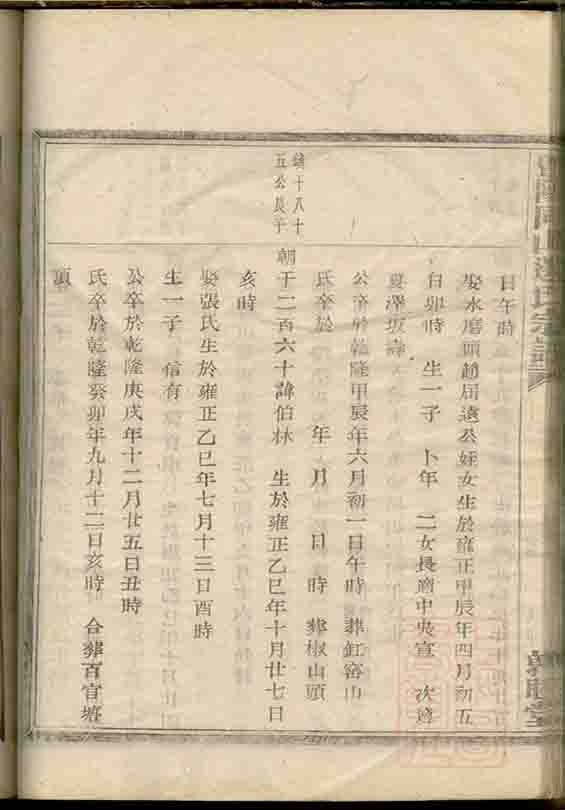 日午時
娶水磨頭趙屆遠公姪女生於雍正甲辰年四月初五
日卯時　生一子　卜年　二女長適中央宣　次適
夏澤坂壽
公卒於乾隆甲辰年六月初一日午時　葬缸窰山
氏卒於　年　月　日　時　葬椒山頭
鎮十八十
五公長子
朝于二百六十諱伯林　生於雍正乙巳年十月廿七日
亥時
娶張氏生於雍正乙巳年七月十三日酉時
生一子　信有
公卒於乾隆庚戌年十二月廿五日丑時
氏卒於乾隆癸卯年九月十二日亥時　合葬百官塘
頂